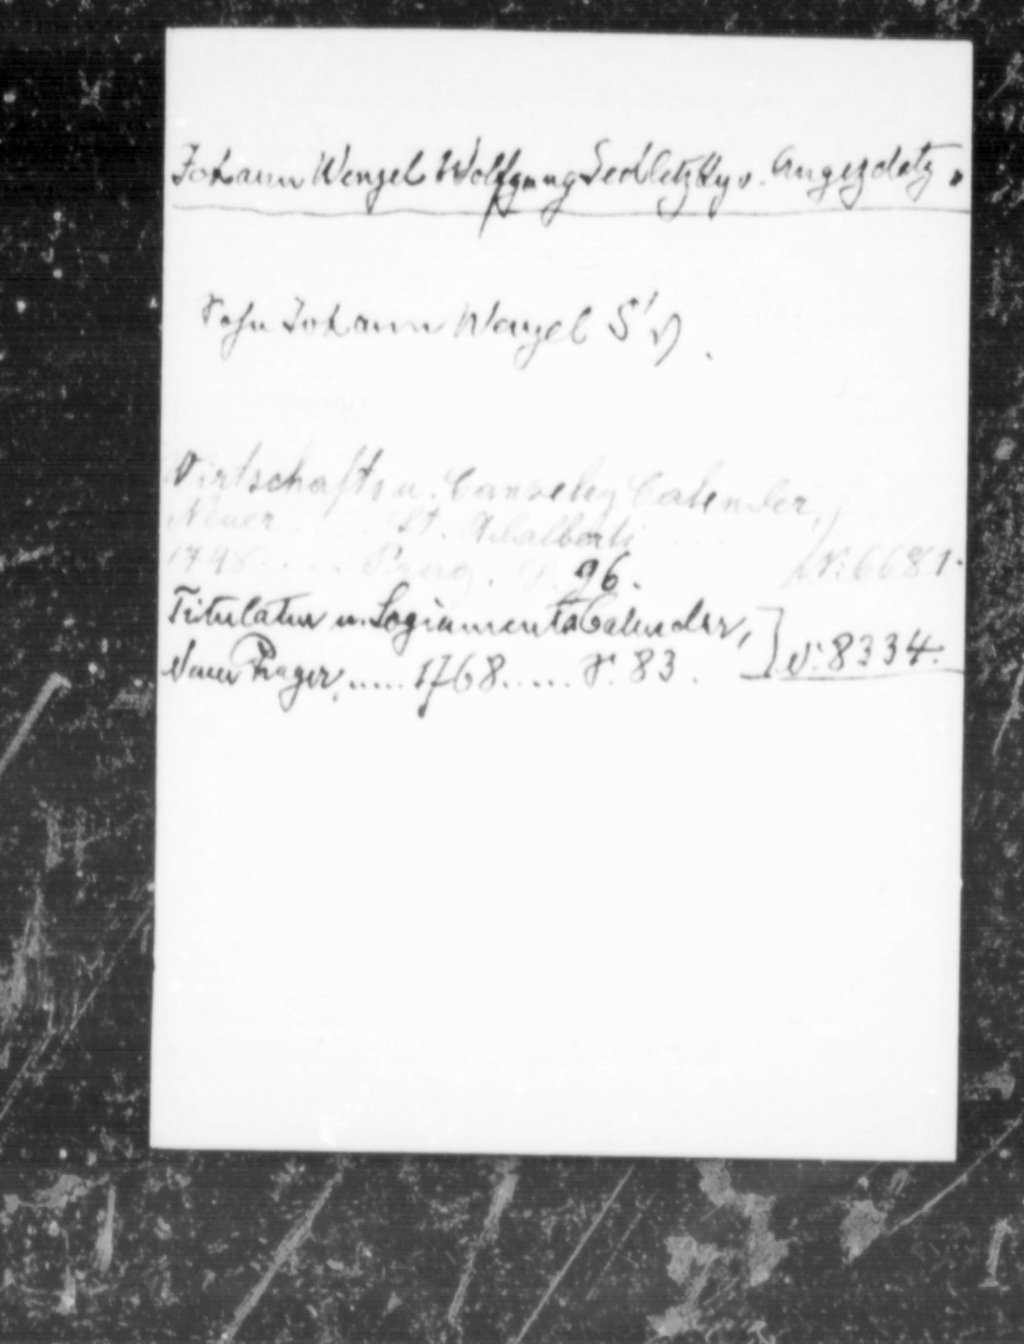 Johann Wenzel Wolfgang Sedletzky v. Augezdetz.
Johann Wenzel S.
Wirtschafts u. Canzeley Calender,
Neuer ..... St. Adalberti ....
1748 ..... Prag. S. 96. N: 6681.
Titulatur u. Logiaments Calender,
Neuer Prager ..... 1768 ..... S. 83. N: 8334.